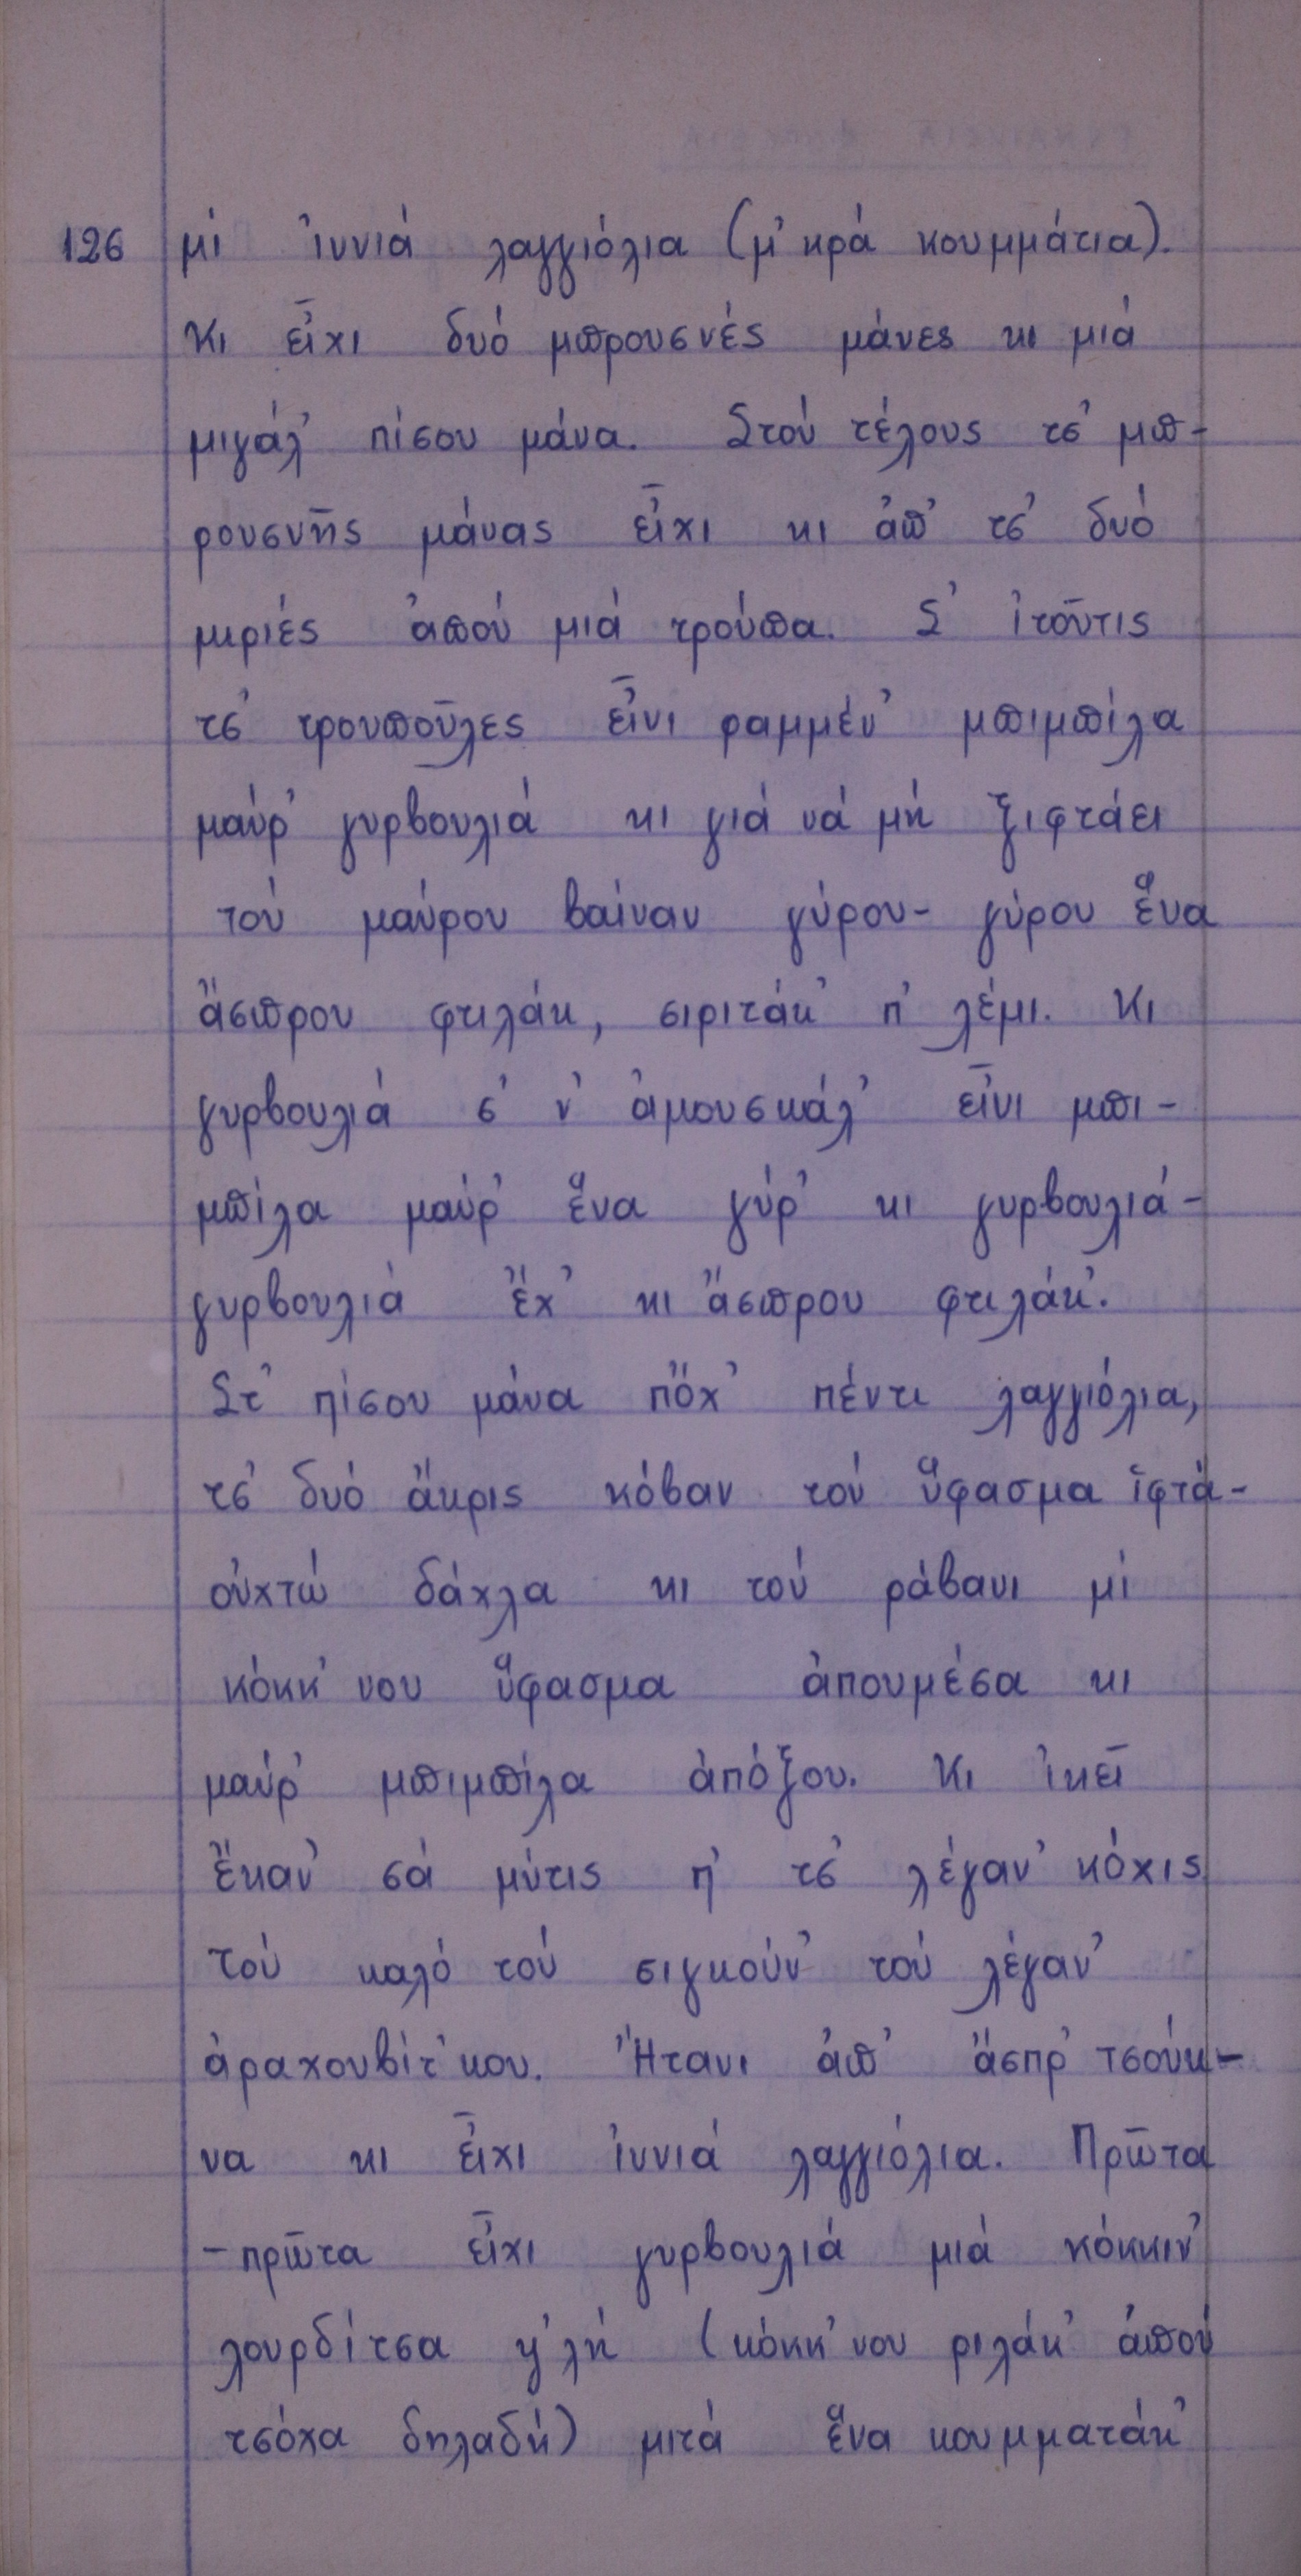 126 μί ἰννιά λαγγιόλια (μ' κρά κουμμάτια).
Κι εἶχι δυό μπρουσνές μάνες κι μιά
μιγάλ' πίσου μάνα. Στού τέλους τσ' μπ-
ρουσνῆς μάνας εἶχι κι ἀπ' τσ' δυό
μιριές ἀπού μιά τρούπα. Σ' ἰτοῦτις
τσ' τρουποῦλες εἶνι ραμμέν' μπιμπίλα
μαύρ' γυρβουλιά κι γιά νά μή ξιφτάει
τού μαύρου βαίναν γύρου- γύρου ἕνα
ἄσπρου φτιλάκ, σιριτάκ' π' λέμι. Κι
γυρβουλιά σ' ν' ἀμουσκάλ' εἶνι μπι-
μπίλα μαύρ' ἕνα γύρ' κι γυρβουλιά-
γυρβουλιά ἔχ' κι ἄσπρου φτιλάκ'.
Στ' πίσου μάνα πὄχ' πέντι λαγγιόλια,
τσ' δυό ἄκρις κόβαν τού ὕφασμα ἱφτά-
οὐχτώ δάχλα κι τού ράβανι μί
κόκκ' νου ὕφασμα ἀπουμέσα κι
μαύρ' μπιμπίλα ἀπόξου. Κι ἰκεῖ
ἔκαν' σά μύτις π' τσ' λέγαν' κόχις
τού καλό τού σιγκούν' τού λέγαν'
ἀραχουβίτ'κου. Ἤτανι ἀπ' ἄσπρ' τσούκ-
να κι εἶχι ἰννιά λαγγιόλια. Πρῶτα
-πρῶτα εἶχι γυρβουλιά μιά κόκκιν'
λουρδίτσα ψ'λή (κόκκ'νου ριλάκ' ἀπού
τσόχα δηλαδή) μιτά ἕνα κουμματάκ'